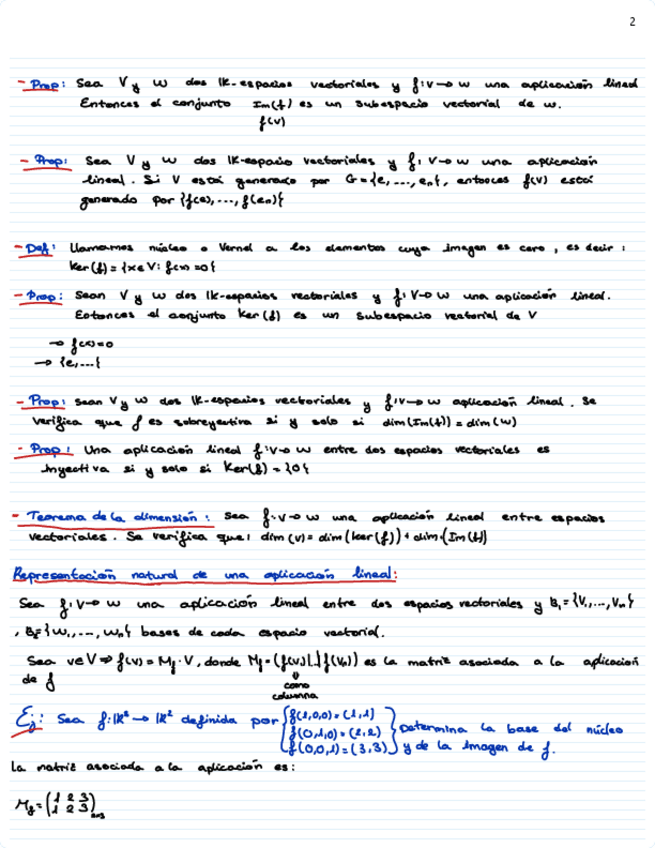 2
- Prop: Sea V y W dos IK-espacios vectoriales y f: V → W una aplicación lineal
Entonces el conjunto Im(f) es un subespacio vectorial de W.
f(V)
- Prop: Sea V y W dos IK-espacio vectoriales y f: V → W una aplicación
lineal. Si V está generado por G = {e, ..., en}, entonces f(V) está
generado por {f(e), ..., f(en)}
- Def: Llamamos núcleo o Kernel a los elementos cuya imagen es cero, es decir:
Ker(f) = {x ∈ V: f(x) = 0}
- Prop: Sean V y W dos IK-espacios vectoriales y f: V → W una aplicación lineal.
Entonces el conjunto Ker(f) es un subespacio vectorial de V
→ f(x) = 0
→ {e, ...}
- Prop: Sean V y W dos IK-espacios vectoriales y f: V → W aplicación lineal. Se
verifica que f es sobreyectiva si y solo si dim(Im(f)) = dim(W)
- Prop: Una aplicación lineal f: V → W entre dos espacios vectoriales es
inyectiva si y solo si Ker(f) = {0}
- Teorema de la dimensión: Sea f: V → W una aplicación lineal entre espacios
vectoriales. Se verifica que: dim(V) = dim(Ker(f)) + dim(Im(f))
Representación natural de una aplicación lineal:
Sea f: V → W una aplicación lineal entre dos espacios vectoriales y B₁ = {V₁, ..., Vn}
, B₂ = {W₁, ..., Wn} bases de cada espacio vectorial.
Sea v ∈ V ⇒ f(v) = Mf · V, donde Mf = (f(v₁)|...|f(Vn)) es la matriz asociada a la aplicación
de f
como
columna
Ej: Sea f: IR³ → IR² definida por { f(1,0,0) = (1,1)
f(0,1,0) = (2,2) } Determina la base del núcleo
f(0,0,1) = (3,3) y de la imagen de f.
La matriz asociada a la aplicación es:
Mf = (1 2 3
1 2 3)₂ₓ₃